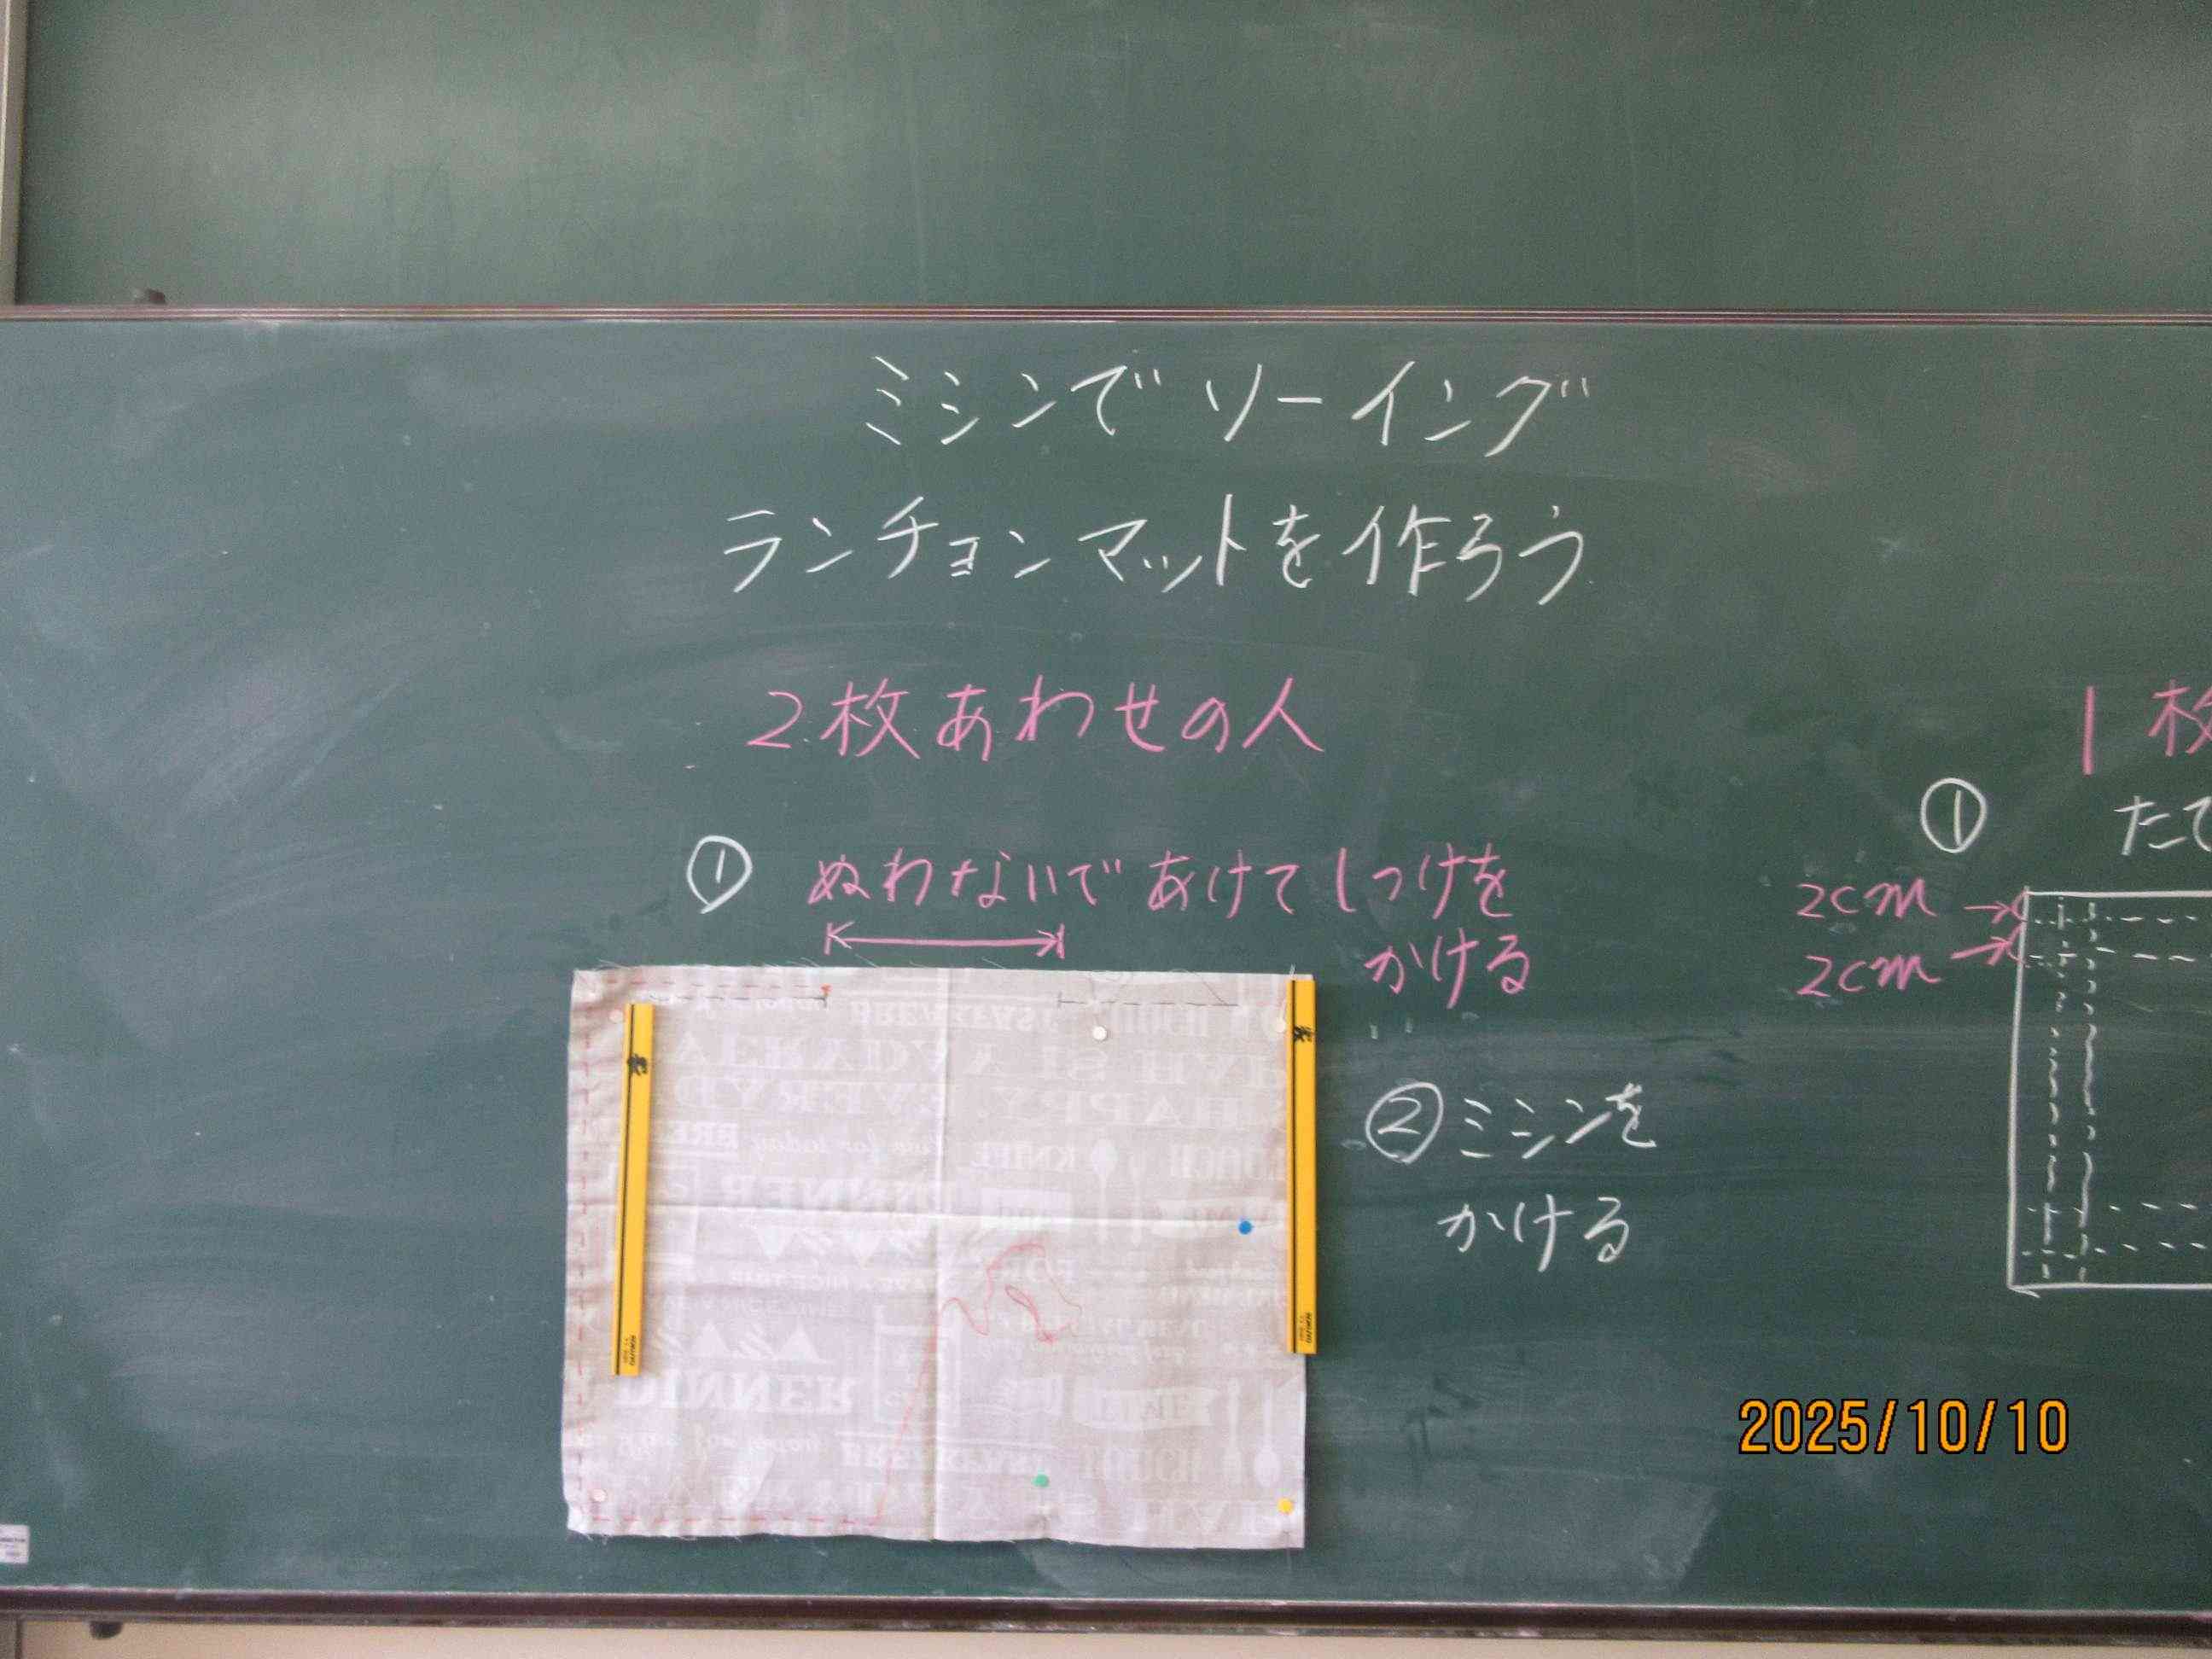 ミシンでソーイング
ランチョンマットを作ろう
2枚あわせの人
① ぬわないであけてしつけを
かける
② ミシンを
かける
1枚
① たて
2cm
2cm
DINNER
KNIFE
2025/10/10